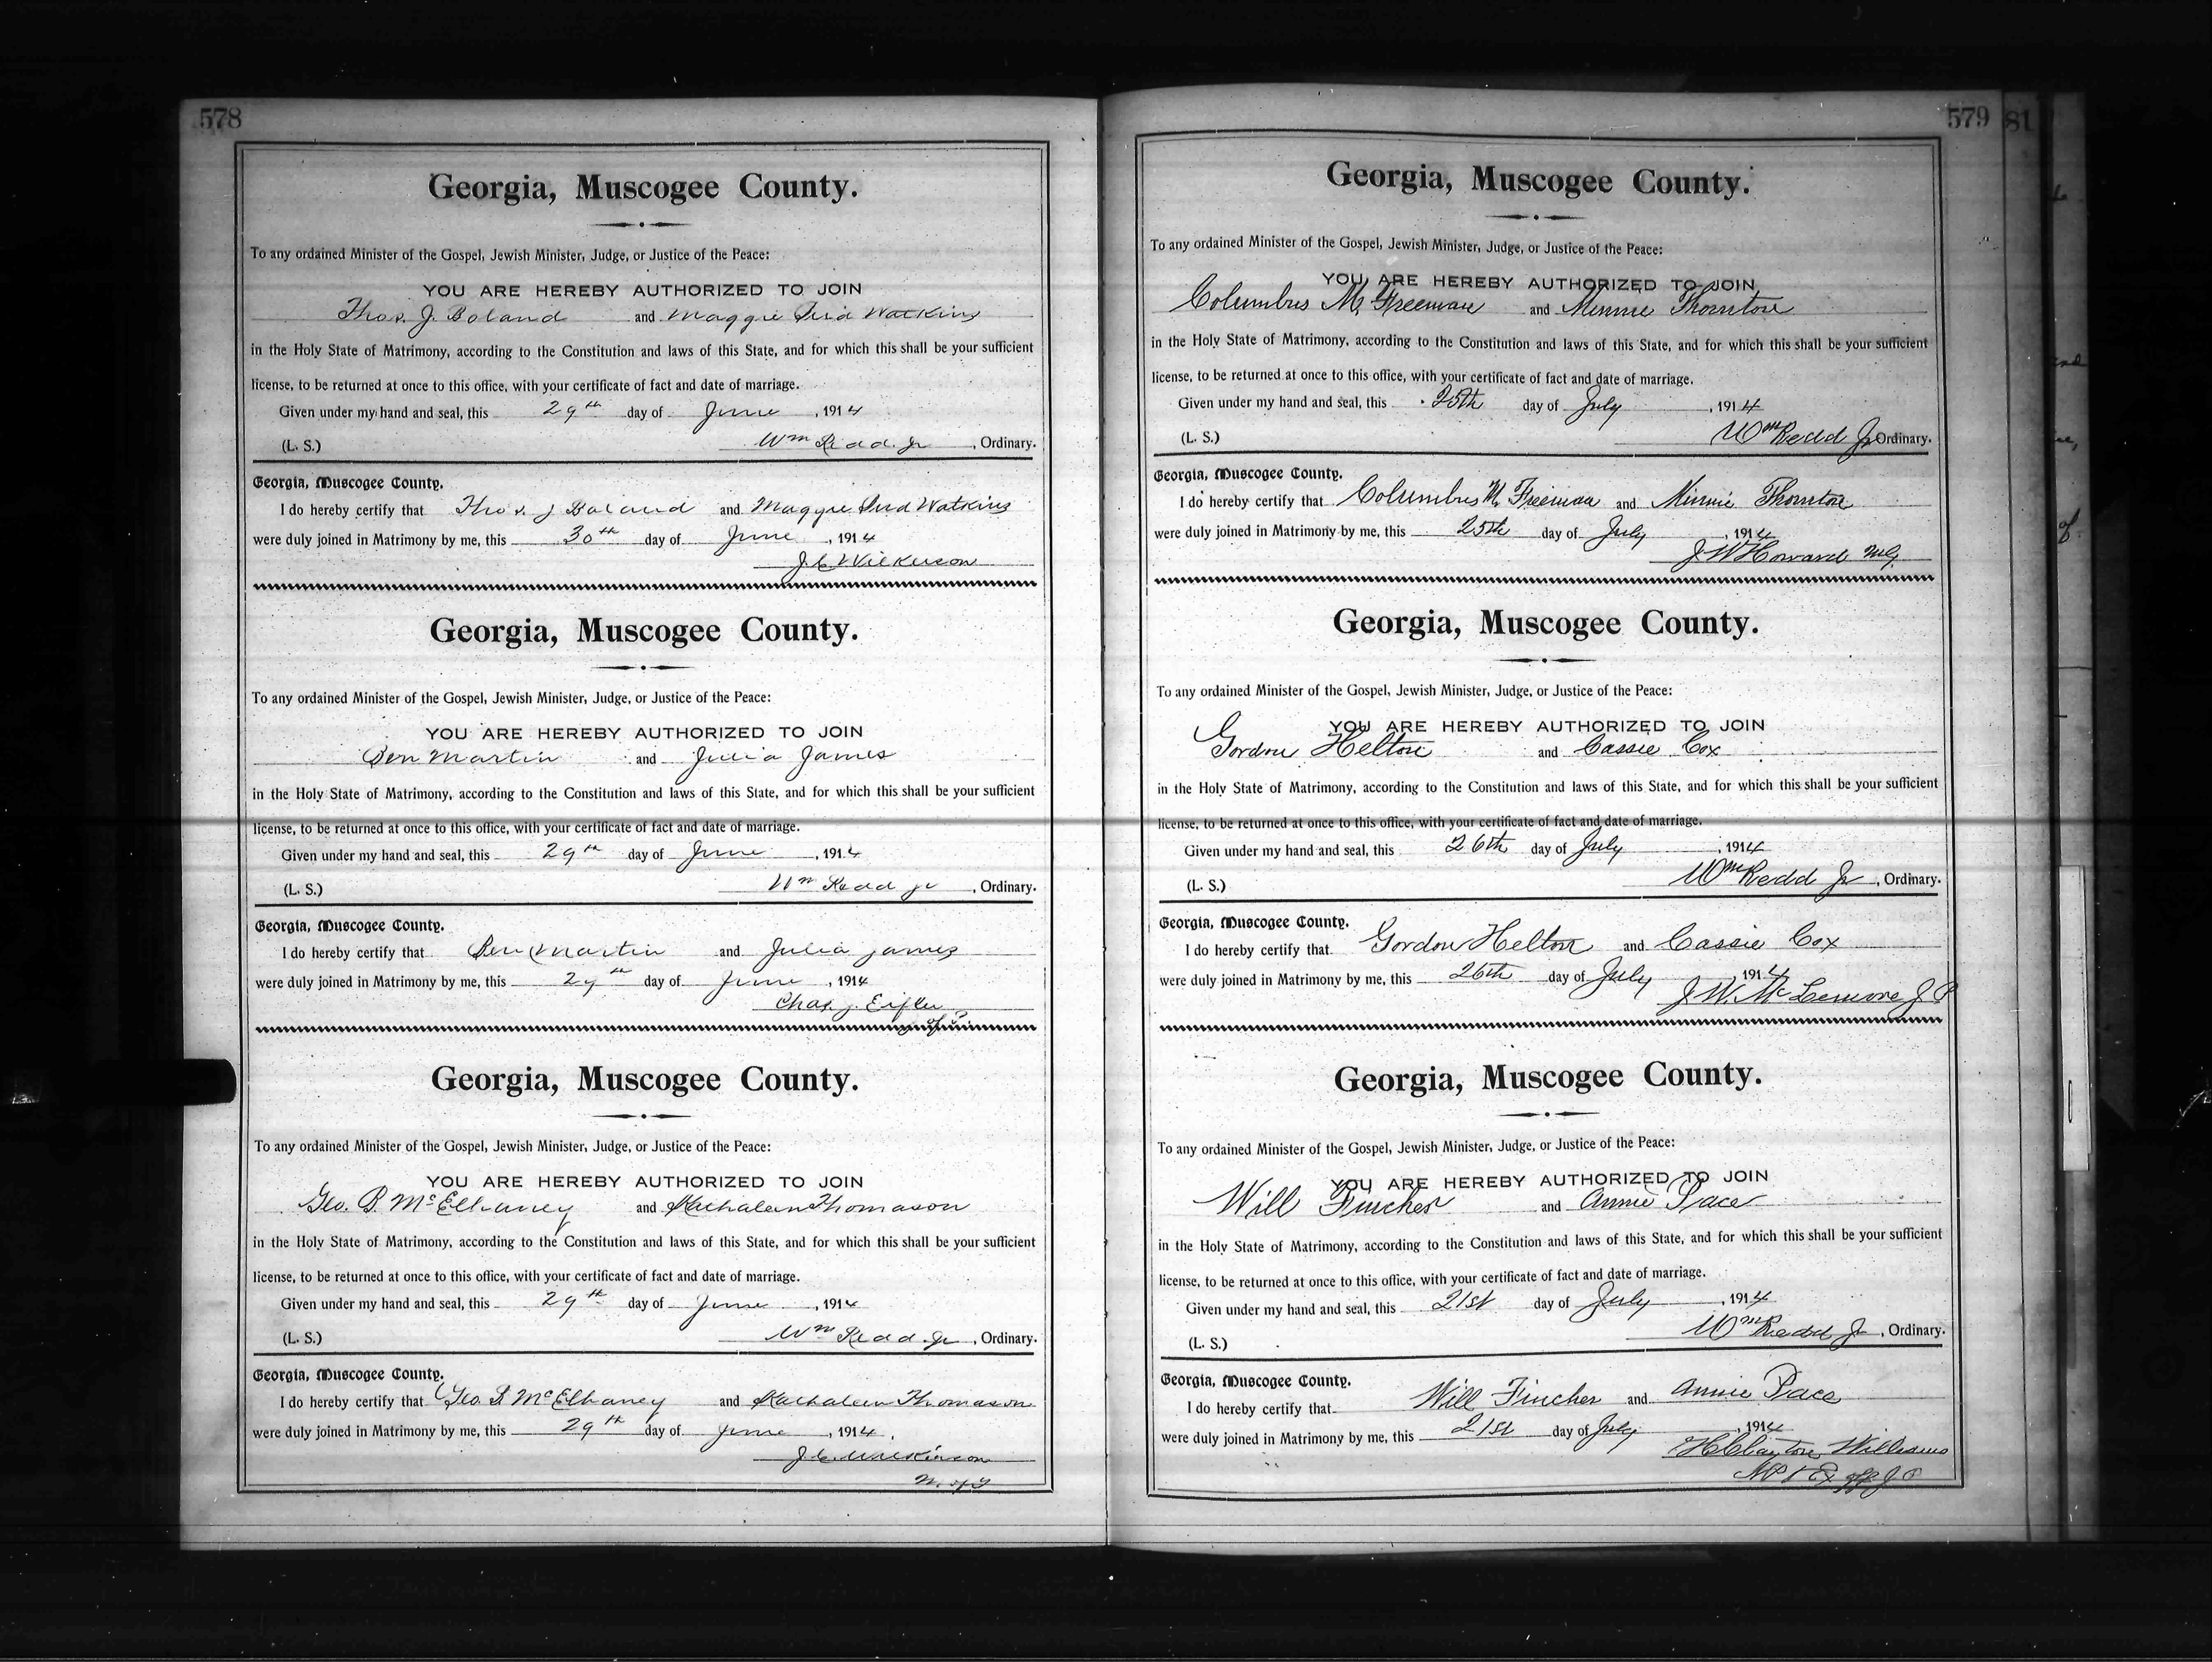 578
Georgia, Muscogee County.
To any ordained Minister of the Gospel, Jewish Minister, Judge, or Justice of the Peace:
YOU ARE HEREBY AUTHORIZED TO JOIN
Thos. J. Boland and Maggie Watkins
in the Holy State of Matrimony, according to the Constitution and laws of this State, and for which this shall be your sufficient
license, to be returned at once to this office, with your certificate of fact and date of marriage.
Given under my hand and seal, this 29th day of June, 1914
(L. S.) Wm Redd Jr, Ordinary.
Georgia, Muscogee County.
I do hereby certify that Thos. J Boland and Maggie Watkins
were duly joined in Matrimony by me, this 30th day of June, 1914
J. C. Wilkinson
Georgia, Muscogee County.
To any ordained Minister of the Gospel, Jewish Minister, Judge, or Justice of the Peace:
YOU ARE HEREBY AUTHORIZED TO JOIN
Ben Martin and Julia James
in the Holy State of Matrimony, according to the Constitution and laws of this State, and for which this shall be your sufficient
license, to be returned at once to this office, with your certificate of fact and date of marriage.
Given under my hand and seal, this 29th day of June, 1914
(L. S.) Wm Redd Jr, Ordinary.
Georgia, Muscogee County.
I do hereby certify that Ben Martin and Julia James
were duly joined in Matrimony by me, this 29th day of June, 1914
Chas. J. Eifler
Georgia, Muscogee County.
To any ordained Minister of the Gospel, Jewish Minister, Judge, or Justice of the Peace:
YOU ARE HEREBY AUTHORIZED TO JOIN
Geo. B. McElhaney and Kathaleen Thomason
in the Holy State of Matrimony, according to the Constitution and laws of this State, and for which this shall be your sufficient
license, to be returned at once to this office, with your certificate of fact and date of marriage.
Given under my hand and seal, this 29th day of June, 1914
(L. S.) Wm Redd Jr, Ordinary.
Georgia, Muscogee County.
I do hereby certify that Geo. B McElhaney and Kathaleen Thomason
were duly joined in Matrimony by me, this 29th day of June, 1914.
J. C. Wilkinson
M. of G
579 81
Georgia, Muscogee County.
To any ordained Minister of the Gospel, Jewish Minister, Judge, or Justice of the Peace:
YOU ARE HEREBY AUTHORIZED TO JOIN
Columbus M. Freeman and Minnie Thornton
in the Holy State of Matrimony, according to the Constitution and laws of this State, and for which this shall be your sufficient
license, to be returned at once to this office, with your certificate of fact and date of marriage.
Given under my hand and seal, this 25th day of July, 1914
(L. S.) Wm Redd Jr Ordinary.
Georgia, Muscogee County.
I do hereby certify that Columbus M. Freeman and Minnie Thornton
were duly joined in Matrimony by me, this 25th day of July, 1914
J W Howard MG
Georgia, Muscogee County.
To any ordained Minister of the Gospel, Jewish Minister, Judge, or Justice of the Peace:
YOU ARE HEREBY AUTHORIZED TO JOIN
Gordon Helton and Cassie Cox
in the Holy State of Matrimony, according to the Constitution and laws of this State, and for which this shall be your sufficient
license, to be returned at once to this office, with your certificate of fact and date of marriage.
Given under my hand and seal, this 26th day of July, 1914
(L. S.) Wm Redd Jr, Ordinary.
Georgia, Muscogee County.
I do hereby certify that Gordon Helton and Cassie Cox
were duly joined in Matrimony by me, this 26th day of July, 1914
J. W. McLemore J P
Georgia, Muscogee County.
To any ordained Minister of the Gospel, Jewish Minister, Judge, or Justice of the Peace:
YOU ARE HEREBY AUTHORIZED TO JOIN
Will Fincher and Annie Pace
in the Holy State of Matrimony, according to the Constitution and laws of this State, and for which this shall be your sufficient
license, to be returned at once to this office, with your certificate of fact and date of marriage.
Given under my hand and seal, this 21st day of July, 1914
(L. S.) Wm Redd Jr, Ordinary.
Georgia, Muscogee County.
I do hereby certify that Will Fincher and Annie Pace
were duly joined in Matrimony by me, this 21st day of July, 1914
H Clayton Williams
NP & Ex off J P